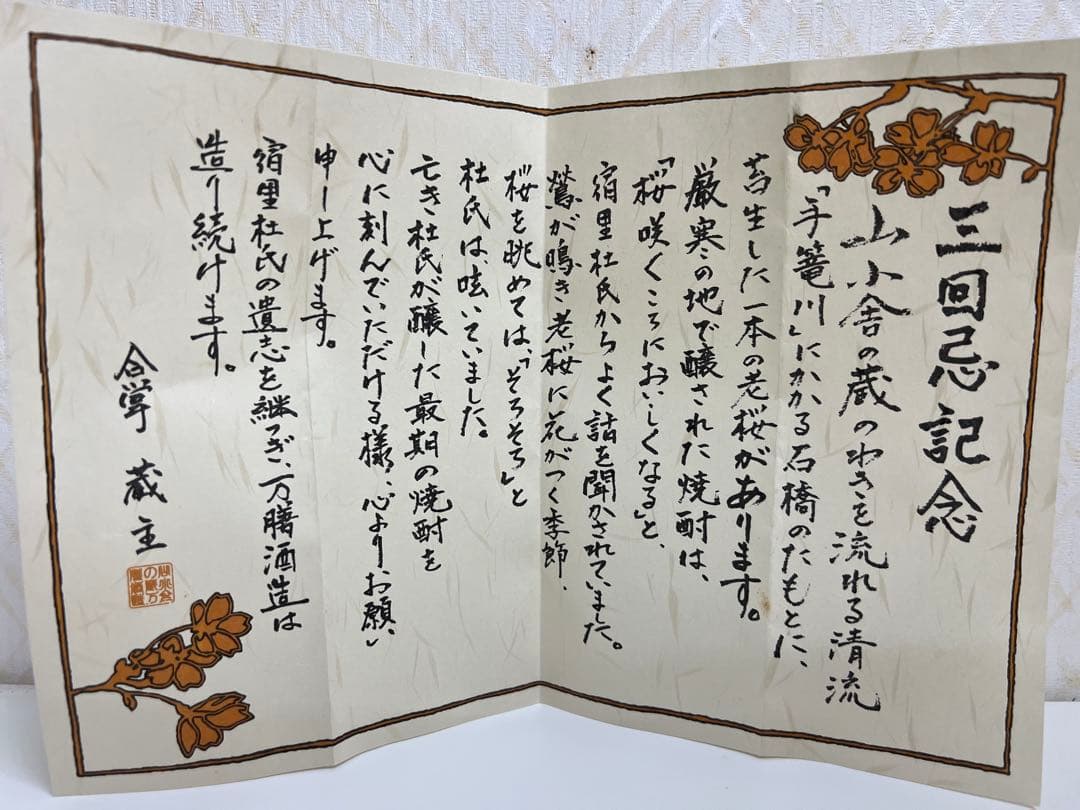 三回忌記念
山小舎の蔵のわきを流れる清流
「手篭川」にかかる石橋のたもとに、
苔生した一本の老桜があります。
厳寒の地で醸された焼酎は、
「桜咲くころにおいしくなる」と、
宿里杜氏からよく話を聞かされていました。
鶯が鳴き老桜に花がつく季節、
桜を眺めては、「そろそろ」と
杜氏は呟いていました。
亡き杜氏が醸した最期の焼酎を
心に刻んでいただける様、心よりお願い
申し上げます。
宿里杜氏の遺志を継ぎ、万膳酒造は
造り続けます。
合掌 蔵主